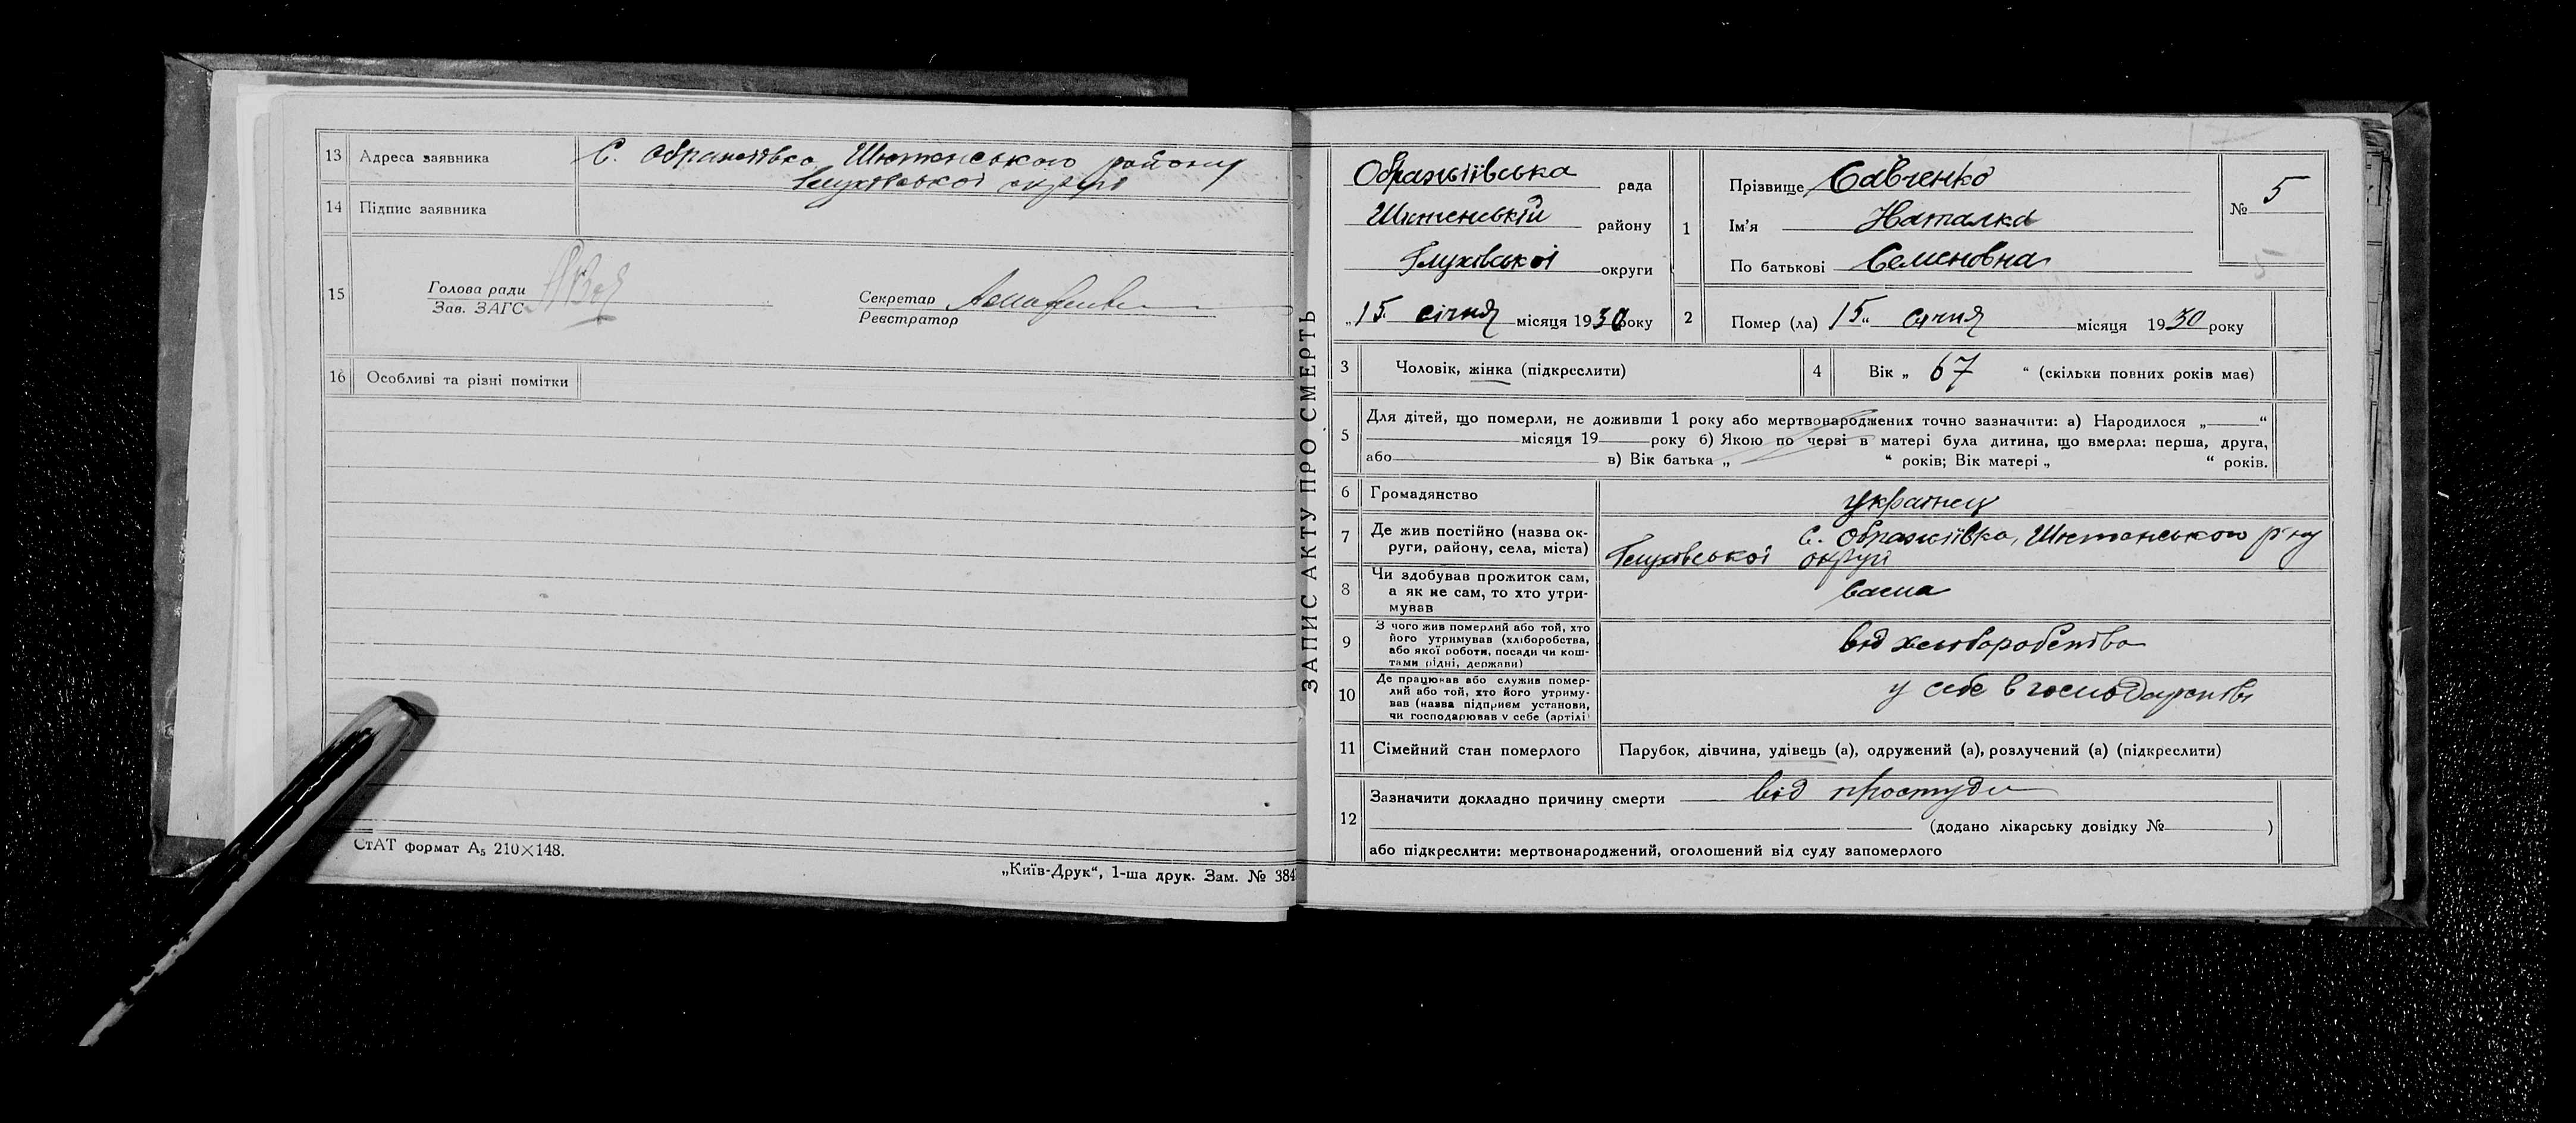 13 Адреса заявника С. Ображіївка, Шютенського району
Глухівської округи
14 Підпис заявника
15 Голова ради
Зав. ЗАГС
Секретар
Реєстратор
16 Особливі та різні помітки
СтАТ формат А₅ 210×148.
„Київ-Друк“, 1-ша друк. Зам. № 384
ЗАПИС АКТУ ПРО СМЕРТЬ
Ображіївська рада
району
Глухівської округи
„15„ січня місяця 1930 року
1 Прізвище Савченко
Ім'я Наталка
По батькові Семеновна
№ 5
5
2 Помер (ла) 15„ січня місяця 1930 року
3 Чоловік, жінка (підкреслити)
4 Вік „ 67 “ (скільки повних років мав)
5 Для дітей, що померли, не доживши 1 року або мертвонароджених точно зазначити: а) Народилося „ “
місяця 19 року б) Якою по черзі в матері була дитина, що вмерла: перша, друга,
або в) Вік батька „ “ років; Вік матері „ “ років.
6 Громадянство українец
7 Де жив постійно (назва ок-
руги, району, села, міста)
С. Ображіївка, Шютенського р-ну
Глухівської округи
8 Чи здобував прожиток сам,
а як не сам, то хто утри-
мував
сама
9 З чого жив померлий або той, хто
його утримував (хліборобства,
або якої роботи, посади чи кош-
тами рідні, держави)
від хлібороб��тва
10 Де працював або служив помер-
лий або той, хто його утриму-
вав (назва підприєм установи,
чи господарював у себе (артілі)
у себе в господарстві
11 Сімейний стан померлого Парубок, дівчина, удівець (а), одружений (а), розлучений (а) (підкреслити)
12 Зазначити докладно причину смерти від простуди
(додано лікарську довідку № )
або підкреслити: мертвонароджений, оголошений від суду запомерлого